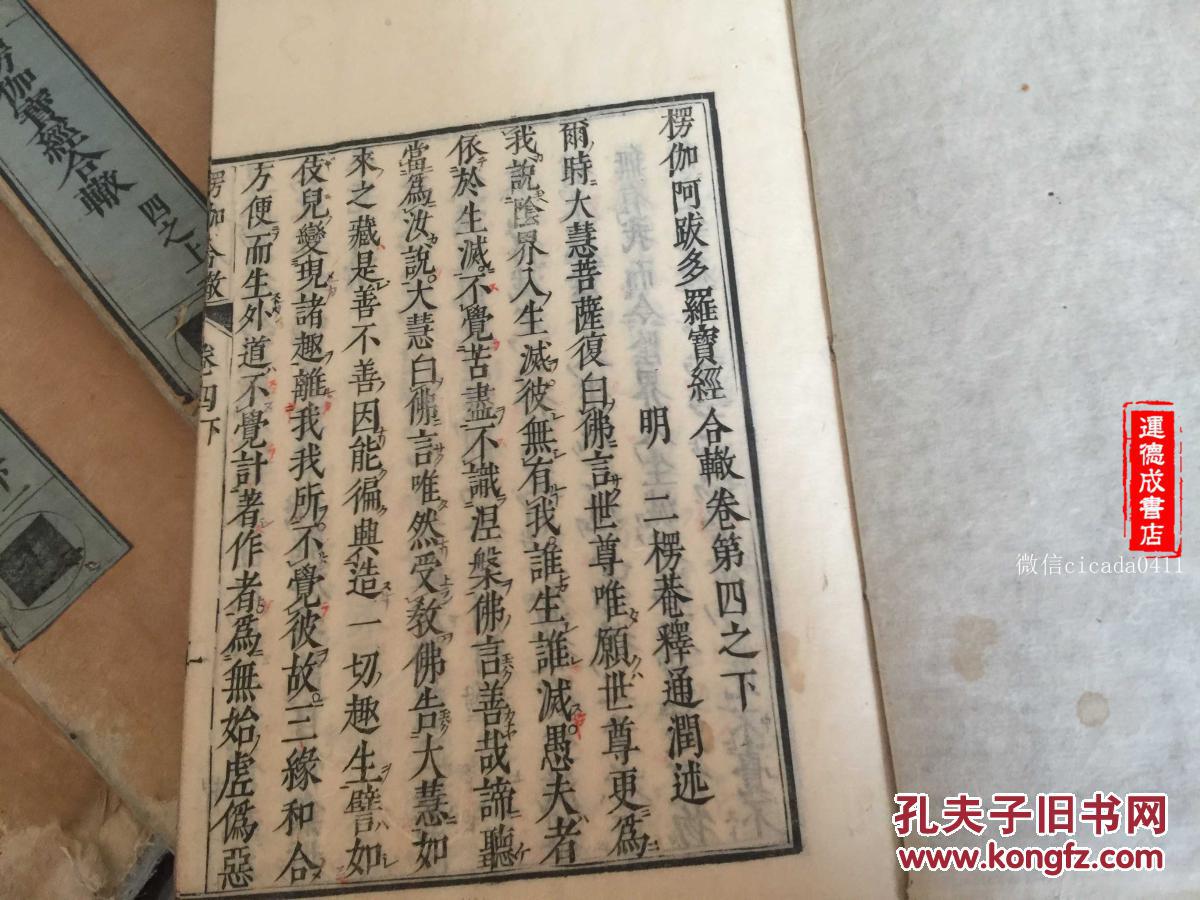 楞伽阿跋多羅寶經合轍卷第四之下
明 二楞菴釋通潤述
爾時大慧菩薩復白佛言世尊唯願世尊更爲
我說陰界入生滅彼無有我誰生誰滅愚夫者
依於生滅不覺苦盡不識涅槃佛言善哉諦聽
當爲汝說大慧白佛言唯然受教佛告大慧如
來之藏是善不善因能徧興造一切趣生譬如
伎兒變現諸趣離我我所不覺彼故三緣和合
方便而生外道不覺計著作者爲無始虛僞惡
楞伽合轍 卷四下 一
楞伽寶經合轍 四之上
運德成書店
微信cicada0411
孔夫子旧书网
www.kongfz.com